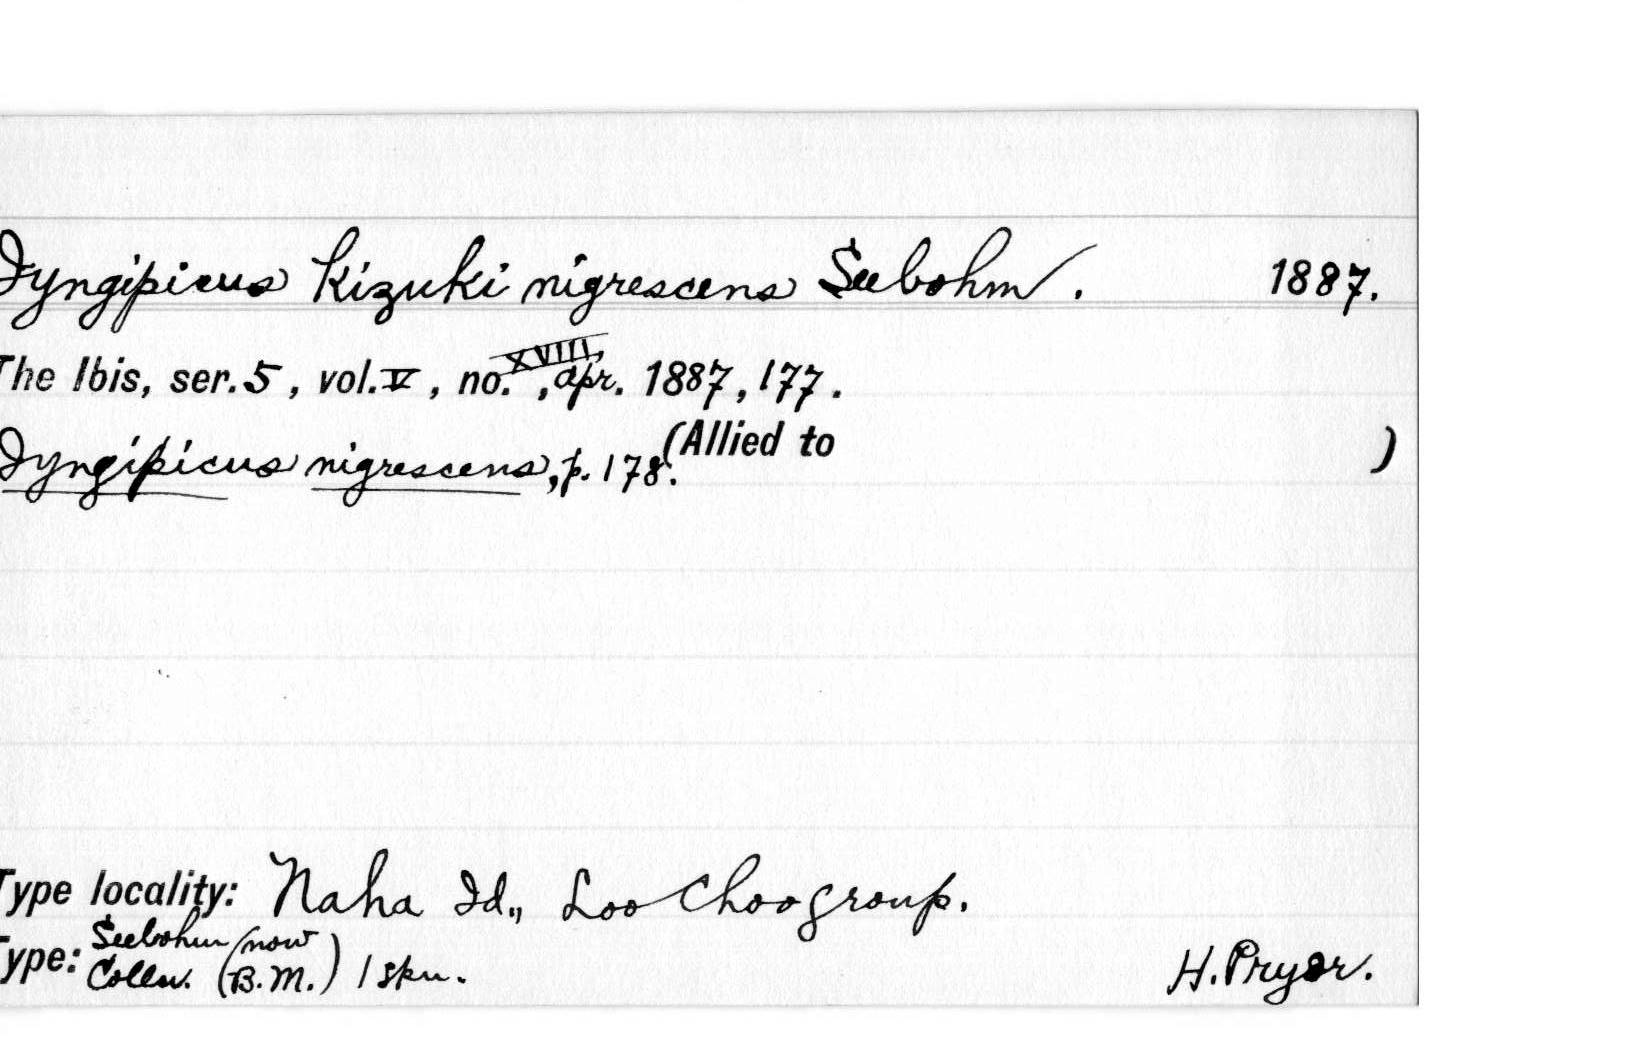 Iyngipicus kizuki nigrescens Seebohm. 1887.
The Ibis, ser. 5, vol. V, no. XVIII, Apr. 1887, 177.
Iyngipicus nigrescens, p. 178. (Allied to )
Type locality: Naha Id., Loo Choo group.
Type: Seebohm Colln. (now B.M.) 1 skn. H. Pryer.